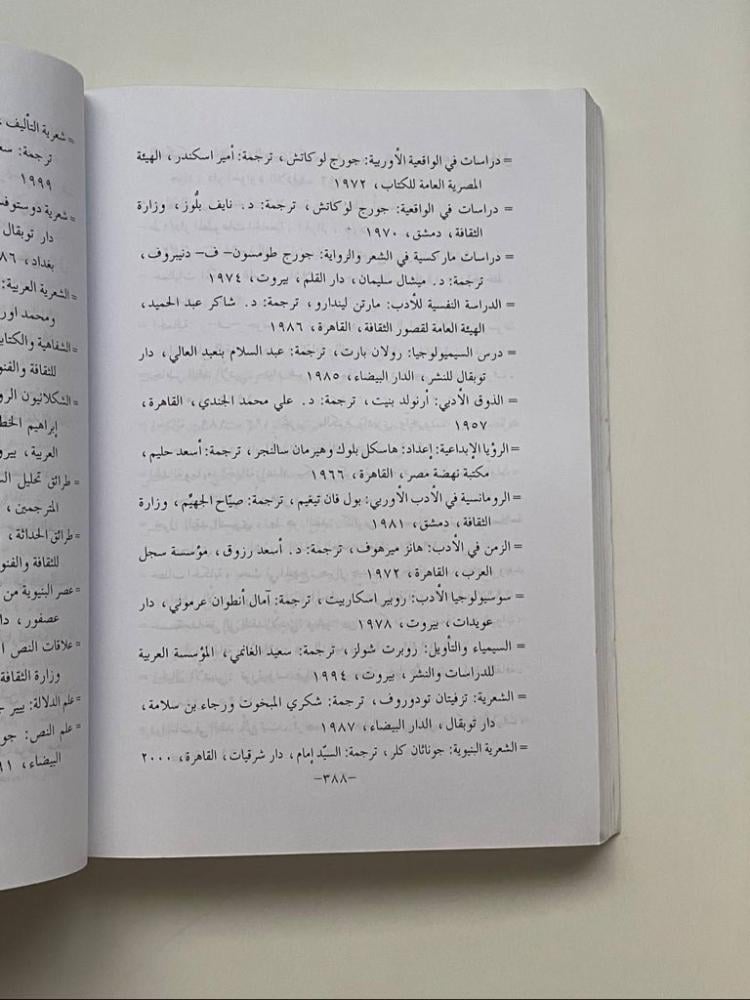 = دراسات في الواقعية الأوربية: جورج لوكاتش، ترجمة: أمير اسكندر، الهيئة
المصرية العامة للكتاب، ١٩٧٢
= دراسات في الواقعية: جورج لوكاتش، ترجمة: د. نايف بلُّوز، وزارة
الثقافة، دمشق، ١٩٧٠
= دراسات ماركسية في الشعر والرواية: جورج طومسون- ف- دنيبروف،
ترجمة: د. ميشال سليمان، دار القلم، بيروت، ١٩٧٤
= الدراسة النفسية للأدب: مارتن ليندارو، ترجمة: د. شاكر عبد الحميد،
الهيئة العامة لقصور الثقافة، القاهرة، ١٩٨٦
= درس السيميولوجيا: رولان بارت، ترجمة: عبد السلام بنعبد العالي، دار
توبقال للنشر، الدار البيضاء، ١٩٨٥
= الذوق الأدبي: أرنولد بنيت، ترجمة: د. علي محمد الجندي، القاهرة،
١٩٥٧
= الرؤيا الإبداعية: إعداد: هاسكل بلوك وهيرمان سالنجر، ترجمة: أسعد حليم،
مكتبة نهضة مصر، القاهرة، ١٩٦٦
= الرومانسية في الأدب الأوربي: بول فان تيغيم، ترجمة: صيّاح الجهيِّم، وزارة
الثقافة، دمشق، ١٩٨١
= الزمن في الأدب: هانز ميرهوف، ترجمة: د. أسعد رزوق، مؤسسة سجل
العرب، القاهرة، ١٩٧٢
= سوسيولوجيا الأدب: روبير اسكاربيت، ترجمة: آمال أنطوان عرموني، دار
عويدات، بيروت، ١٩٧٨
= السيمياء والتأويل: زوبرت شولز، ترجمة: سعيد الغانمي، المؤسسة العربية
للدراسات والنشر، بيروت، ١٩٩٤
= الشعرية: تزفيتان تودوروف، ترجمة: شكري المبخوت ورجاء بن سلامة،
دار توبقال، الدار البيضاء، ١٩٨٧
= الشعرية البنيوية: جوناثان كلر، ترجمة: السيّد إمام، دار شرقيات، القاهرة، ٢٠٠٠
-٣٨٨-
= شعرية التأليف،
ترجمة:
١٩٩٩
= شعرية
دار توبقال
بغداد،
= الشعرية العربية:
ومحمد
= الشفاهية
للثقافة
= الشكلانيون
إبراهيم
العربية،
= طرائق تحليل
المترجمين،
= طرائق الحداثة،
للثقافة
= عصر البنيوية من
عصفور،
= علاقات النص
وزارة الثقافة
= علم الدلالة: بيير
= علم النص:
البيضاء،